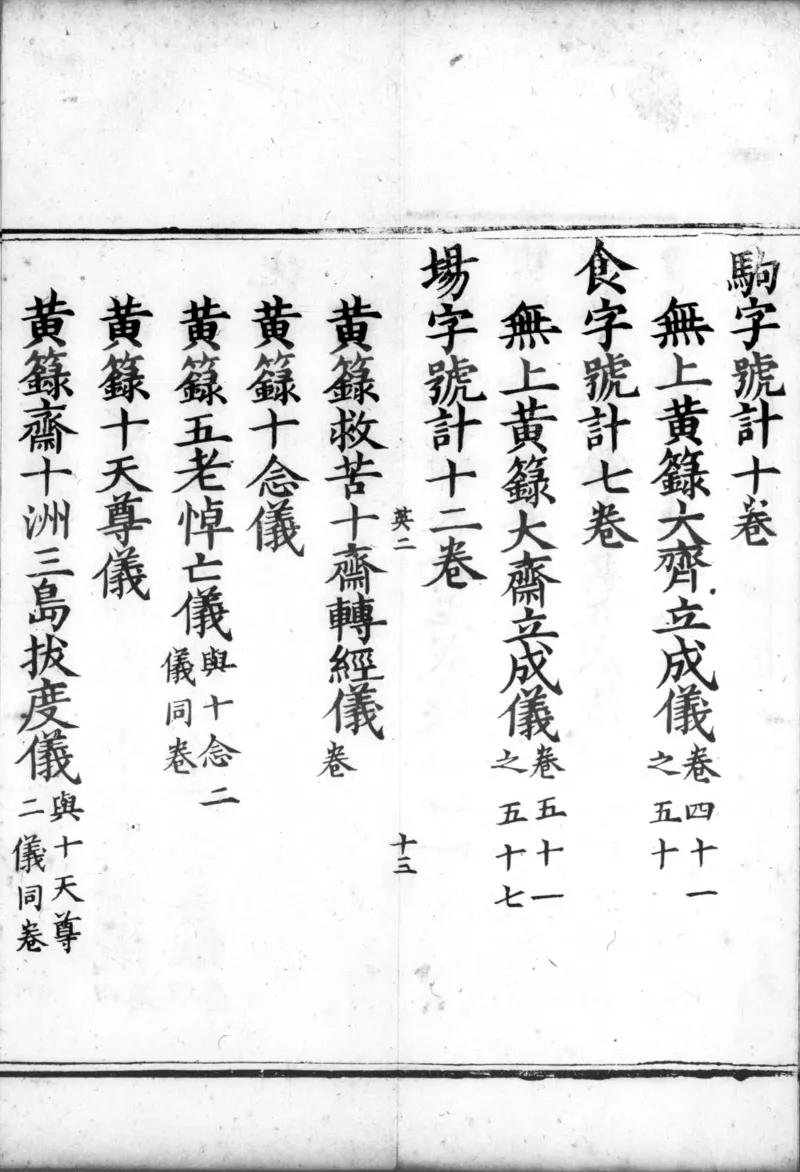 駒字號計十卷
無上黄籙大齊立成儀卷四十一之五十
食字號計七卷
無上黄籙大齋立成儀卷五十一之五十七
場字號計十二卷
英二 十五
黄籙救苦十齋轉經儀卷
黄籙十念儀
黄籙五老悼亡儀與十念二儀同卷
黄籙十天尊儀
黄籙齋十洲三島拔度儀與十天尊二儀同卷